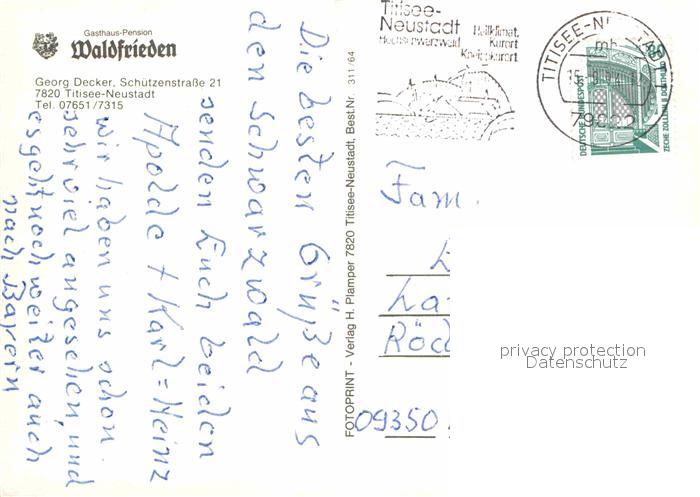 Gasthaus-Pension
Waldfrieden
Georg Decker, Schützenstraße 21
7820 Titisee-Neustadt
Tel. 07651/7315
Die besten Grüße aus
den Schwarzwald
senden Euch beiden
Apolde + Karl=Heinz
wir haben uns schon
sehr viel angesehen, und
es geht noch weiter auch
nach Bayern
FOTOPRINT - Verlag H. Plamper 7820 Titisee-Neustadt, Best.Nr. 311/64
Titisee-
Neustadt
Heilklimat.
Hochschwarzwald Kurort
Kneippkurort
TITISEE-NEUSTADT
mb
15
79822
DEUTSCHE BUNDESPOST
ZECHE ZOLLERN II DORTMUND
Fam.
La
Röd
09350
privacy protection
Datenschutz